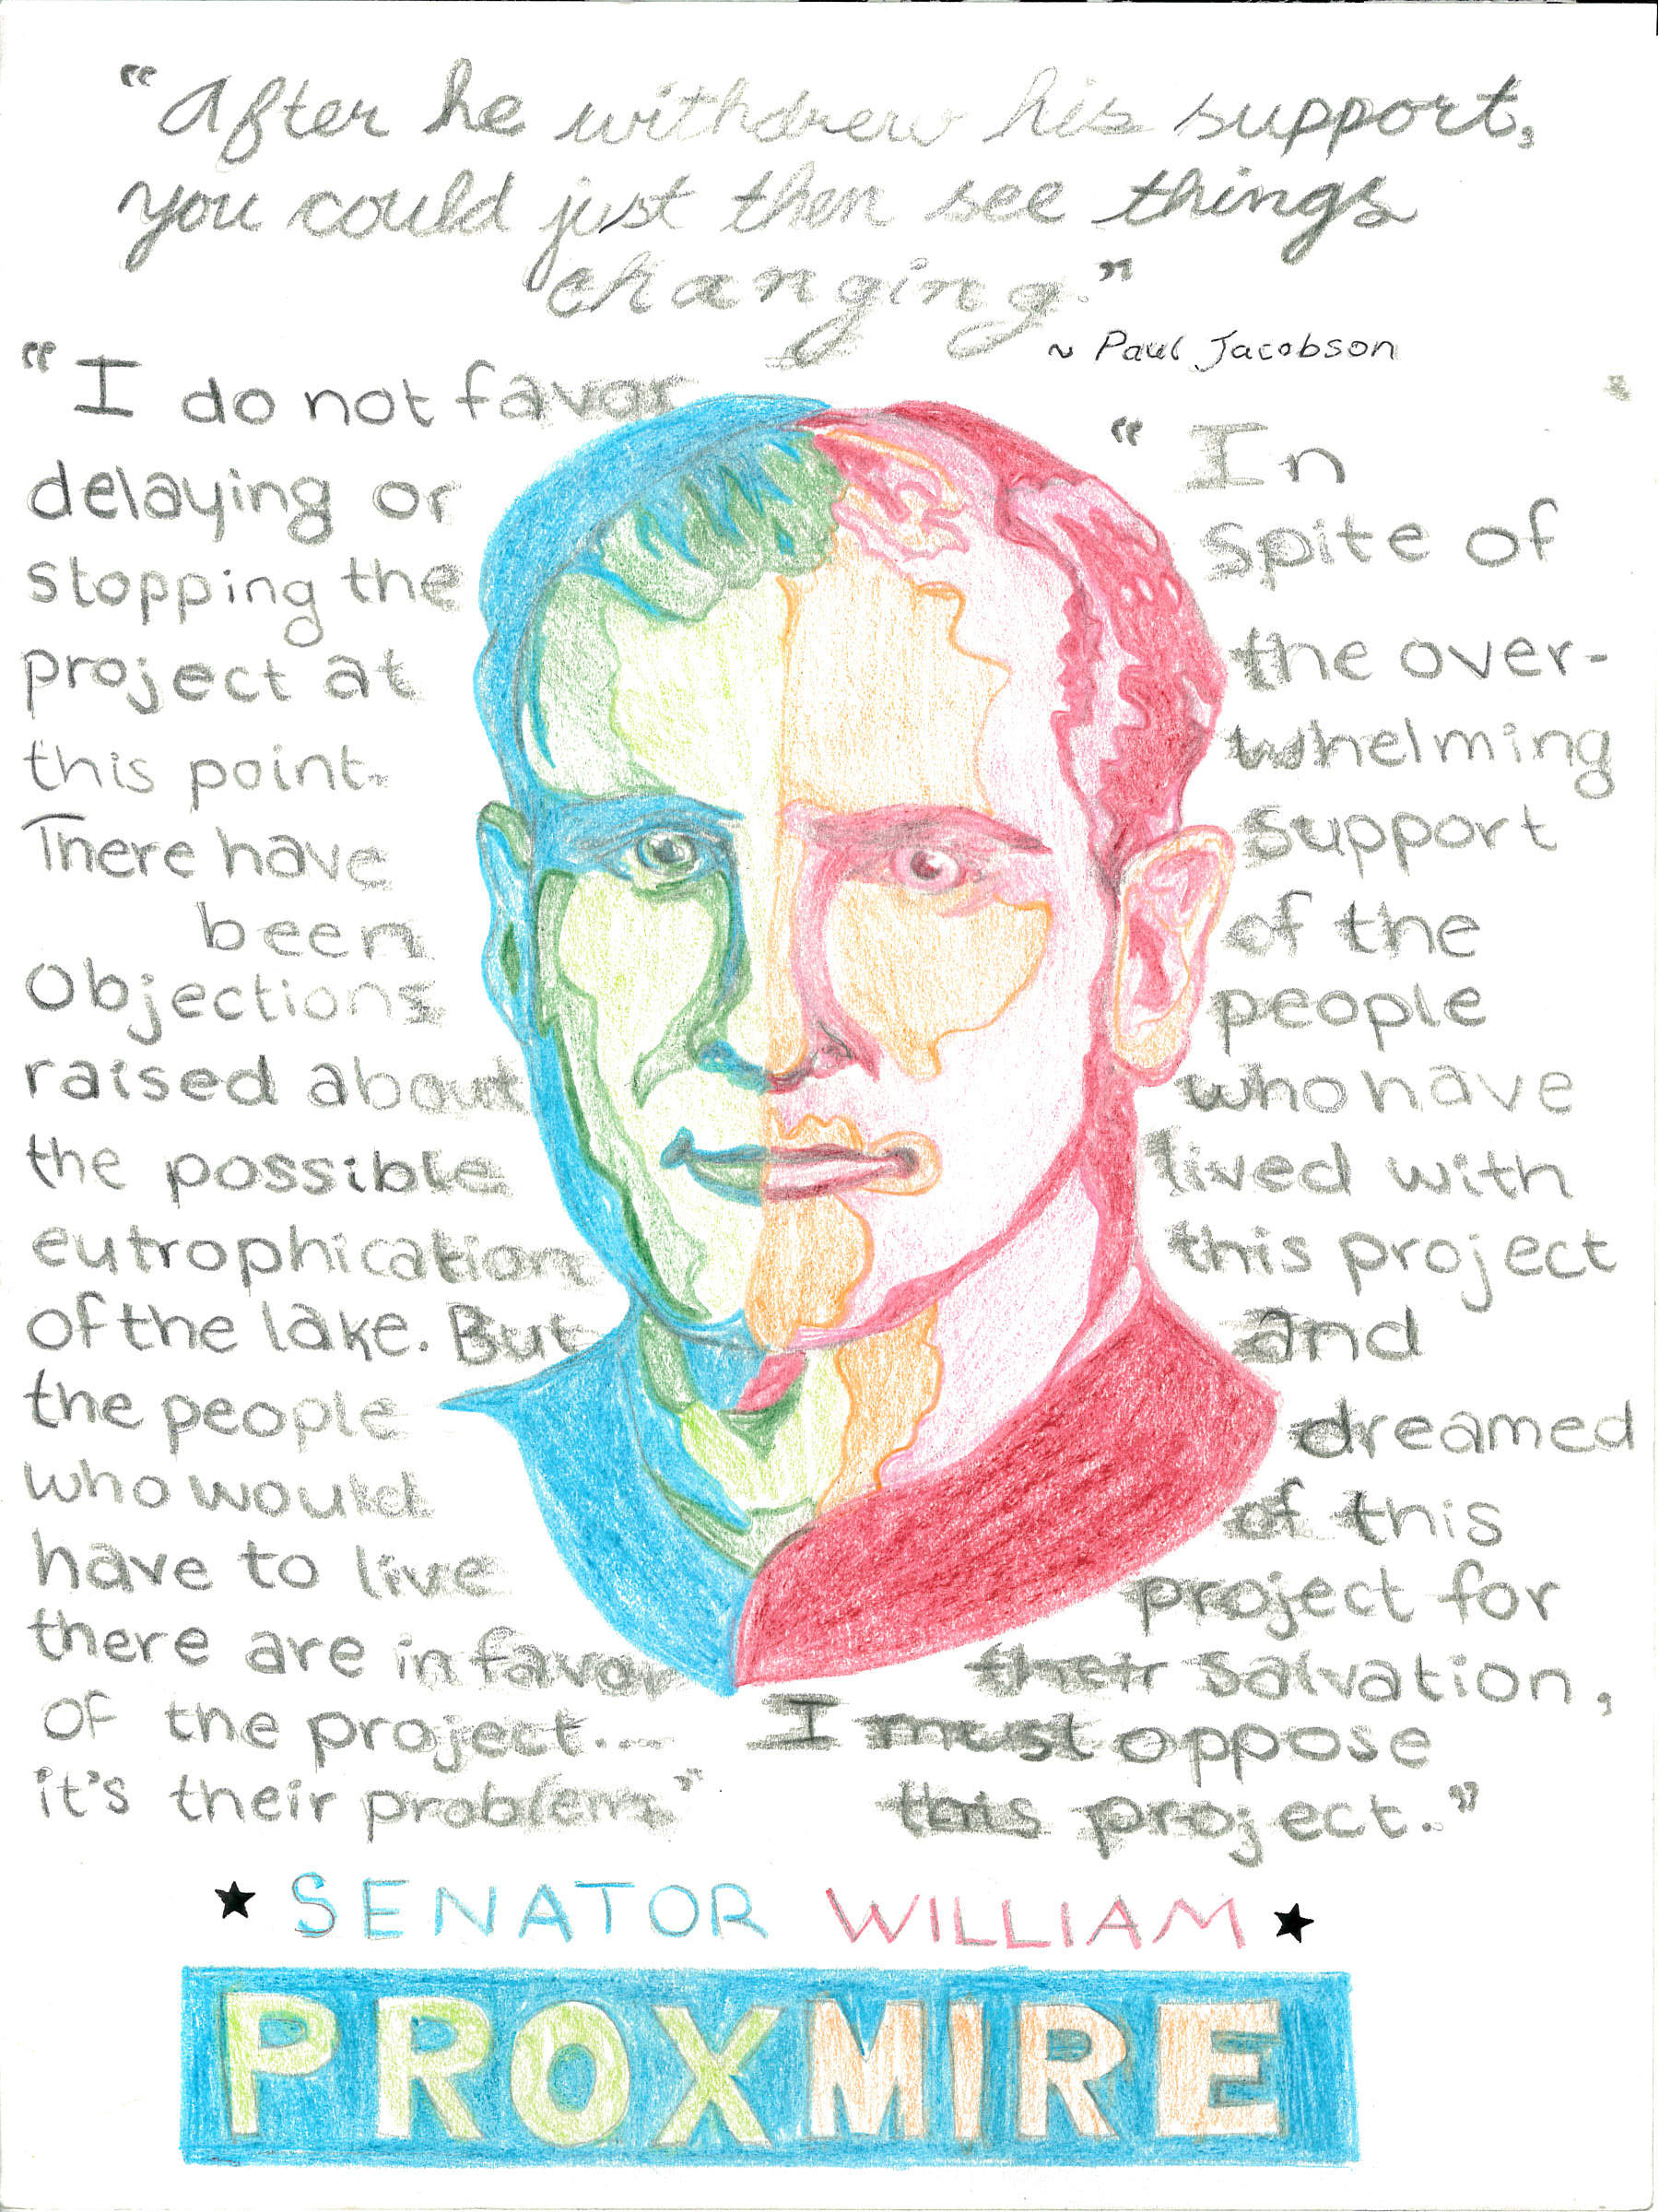 "After he withdrew his support,
you could just then see things
changing."
~ Paul Jacobson
"I do not favor
delaying or
stopping the
project at
this point.
There have
been
Objections
raised about
the possible
eutrophication
of the lake. But
the people
who would
have to live
there are in favor
of the project...
it's their problem"
"In
spite of
the over-
whelming
support
of the
people
who have
lived with
this project
and
dreamed
of this
project for
their salvation,
I must oppose
this project."
★ SENATOR WILLIAM ★
PROXMIRE